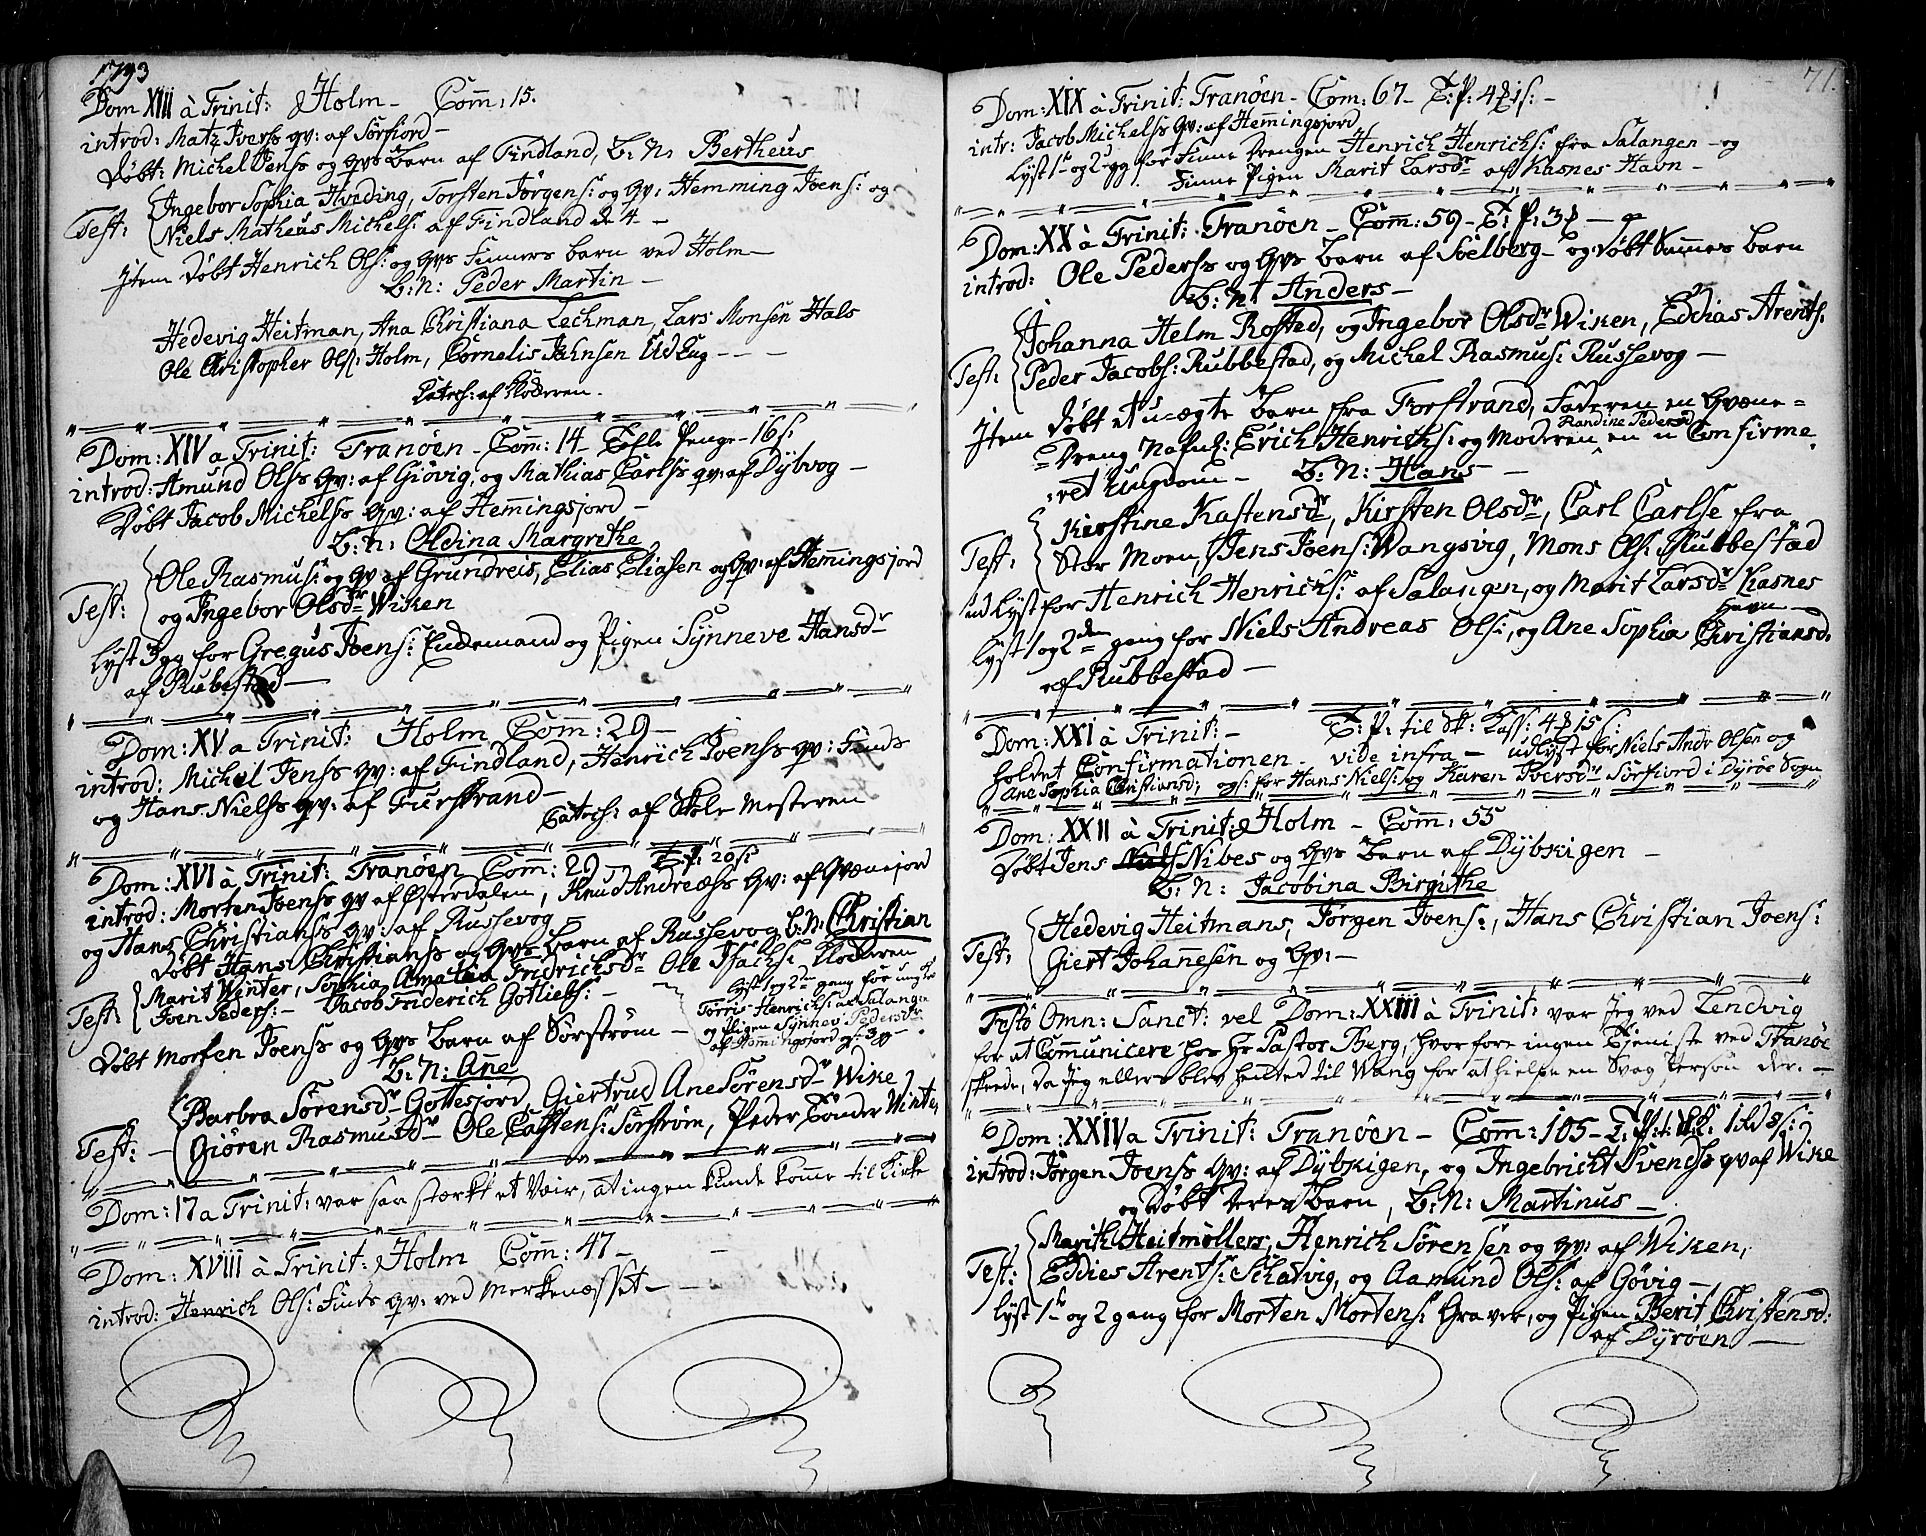 1793
Dom XIII à Trinit: Holm – Com̄: 15.
introd: Matz Iverss qv: af Sörfiord –
Døbt: Michel Jenss og qvs Barn af Findland, B: N: Bertheus
Ingebor Sophia Hveding, Torsten Jörgens: og qv: Hemming Joens: og
Test: Niels Matheus Michels: af Findland
Item døbt Henrich Ols: og qvs Finners barn ved Holm –
B: N: Peder Martin –
Hedevig Heitman, Ana Christiana Lechman, Lars Monsen Hals
Ole Christopher Ols: Holm, Cornelis Jahnsen Udkug – – –
Catech: af Kloderen.
Dom: XIV a Trinit: Tranöen – Com̄: 14 – Tfle Penge – 16 s:
introd: Amund Olss qv: af Giövig, og Mathias Carlss qv: af Dÿbvog –
Döbt Jacob Michelss qv: af Hem̄ingsjord –
B: N: Oldina Margrethe
Ole Rasmus: og qv af Grundreis, Elias Eliasen og qv: af Hem̄ingsjord
Test: og Ingebor Olsdr Wiken
Lyst 3 gg for Gregus Joens: Enkemand og Pigen Sÿnneve Hansdr
af Rubestad –
Dom: XV a Trinit: Holm Com̄: 29 –
introd: Michel Jenss qv: af Findland, Henrich Joenss qv: Finds
og Hans Nielss qv: af Furstrand –
Catech: af Skole Mesteren
Dom: XVI à Trinit: Tranöen Com̄: 29 – T. P. 20 s:
introd: Morten Joenss qv af Østerdalen, Knud Andreæss qv: af Qvænejord
og Hans Christianss qv: af Russevog –
døbt Hans Christianss og qvs barn af Russevog B: N: Christian
Marit Winter, Sophia Amalia Fridrichsdr Ole Isachs: Kloderen
Test: Joen Peders: – Jacob Friderich Gotliebs: –
lyst 1 og 2den gang for ungkr
Torris Henrichs: af Salangen
og Pigen Synnev Pedersdr
af Hem̄ingsjord og: 3 g –
Døbt Morten Joenss og qvs Barn af Sörström –
B: N: Ane
Barbra Sörensdr Gottesjord, Giertrud Ane Sörensdr Wike
Test: – Giören Rasmusdr – Ole Castens: Sörström, Peder Tönder Winte,
Dom: 17 a Trinit: var saa stærkt et Vair, at ingen kunde kom̄e til Kirke
Dom: XVIII à Trinit: Holm Com̄: 47 –
introd: Henrich Ols: Finds qv: ved Merkenæsset –
71.
Dom: XIX à Trinit: Tranöen – Com: 67 – T: P: 4 ℔ 1 s: –
intr: Jacob Michelss qv: af Hem̄ingsjord
Lyst 1te og 2 gg for Finne Drengen Henrich Henrichs: fra Salangen – og
Finne Pigen Marit Larsdr af Kasnes Havn –
Dom: XX à Trinit: Tranöen – Com̄: 59 – T: P: 3 ℔ –
introd: Ole Pederss og qvs Barn af Sölberg – og døbt Sam̄es barn
B: N: Anders –
Johanna Helm Rosted, og Ingebor Olsdr Wiken, Eddias Arents:
Test: Peder Jacobs: Rubbestad, og Michel Rasmus: Russevog –
Item döbt et u-ægte barn fra Forstrand, Faderen en Qvæne =
= Dreng Nafnl: Erich Henrichs: og Moderen Randine Pedersd en u Confirme
= ret Ungdom – B: N: Hans –
Kirstine Kastensdr, Kirsten Olsdr, Carl Carlse fra
Test: Stor Moen, Jens Joens: Wangsvig, Mons Ols: Rubbestad
udlÿst for Henrich Henrichs: af Salangen, og Marit Larsdr Kasnes
havn –
lÿst 1 og 2den gang for Niels Andreas Ols:, og Ane Sophia Christiansd.
af Rubbestad –
Dom: XXI à Trinit: – T: P: til St: Kass: 4 ℔ 15 s:
holdet Confirmationen – vide infra – udlÿst for Niels Andr Olsen og
Ane Sophia Christiansd; og: for Hans Niels: og Karen Iversdr Sörfiord i Dÿröe Sogn
Dom: XXII à Trinit: Holm – Com̄: 55
Døbt Jens Nibes og qvs Barn af Dÿbskigen –
B: N: Jacobina Birgithe
Hedevig Heitmans, Jörgen Joens:, Hans Christian Joens:
Test: Giert Johannesen og qv: –
Festo Omn: Sanct: vel Dom: XXIII à Trinit: var Jeg ved Lendvig
for at Communicere hos Hr Pastor Berg, hvorfore ingen Tjeniste ved Tranöe
skeede, da Jeg ellers blev hented til Wang for at hielpe en Svag Person der. –
Dom: XXIV a Trinit: Tranöen – Com̄: 105 – T: P: 1 Rd 8 s:
introd: Jörgen Joenss qv: af Dÿbskigen, og Ingebricht Svendss qv af Wike
og Döbt deres Barn, B: N: Martinus –
Marith Heitmöllers, Henrich Sörensen og qv: af Wiken,
Test: Eddies Arents: Schatvig, og Aamund Ols: af Gövig –
lÿst 1te og 2 gang for Morten Mortens: Graver, og Pigen Berit Christensd:
af Dÿröen –